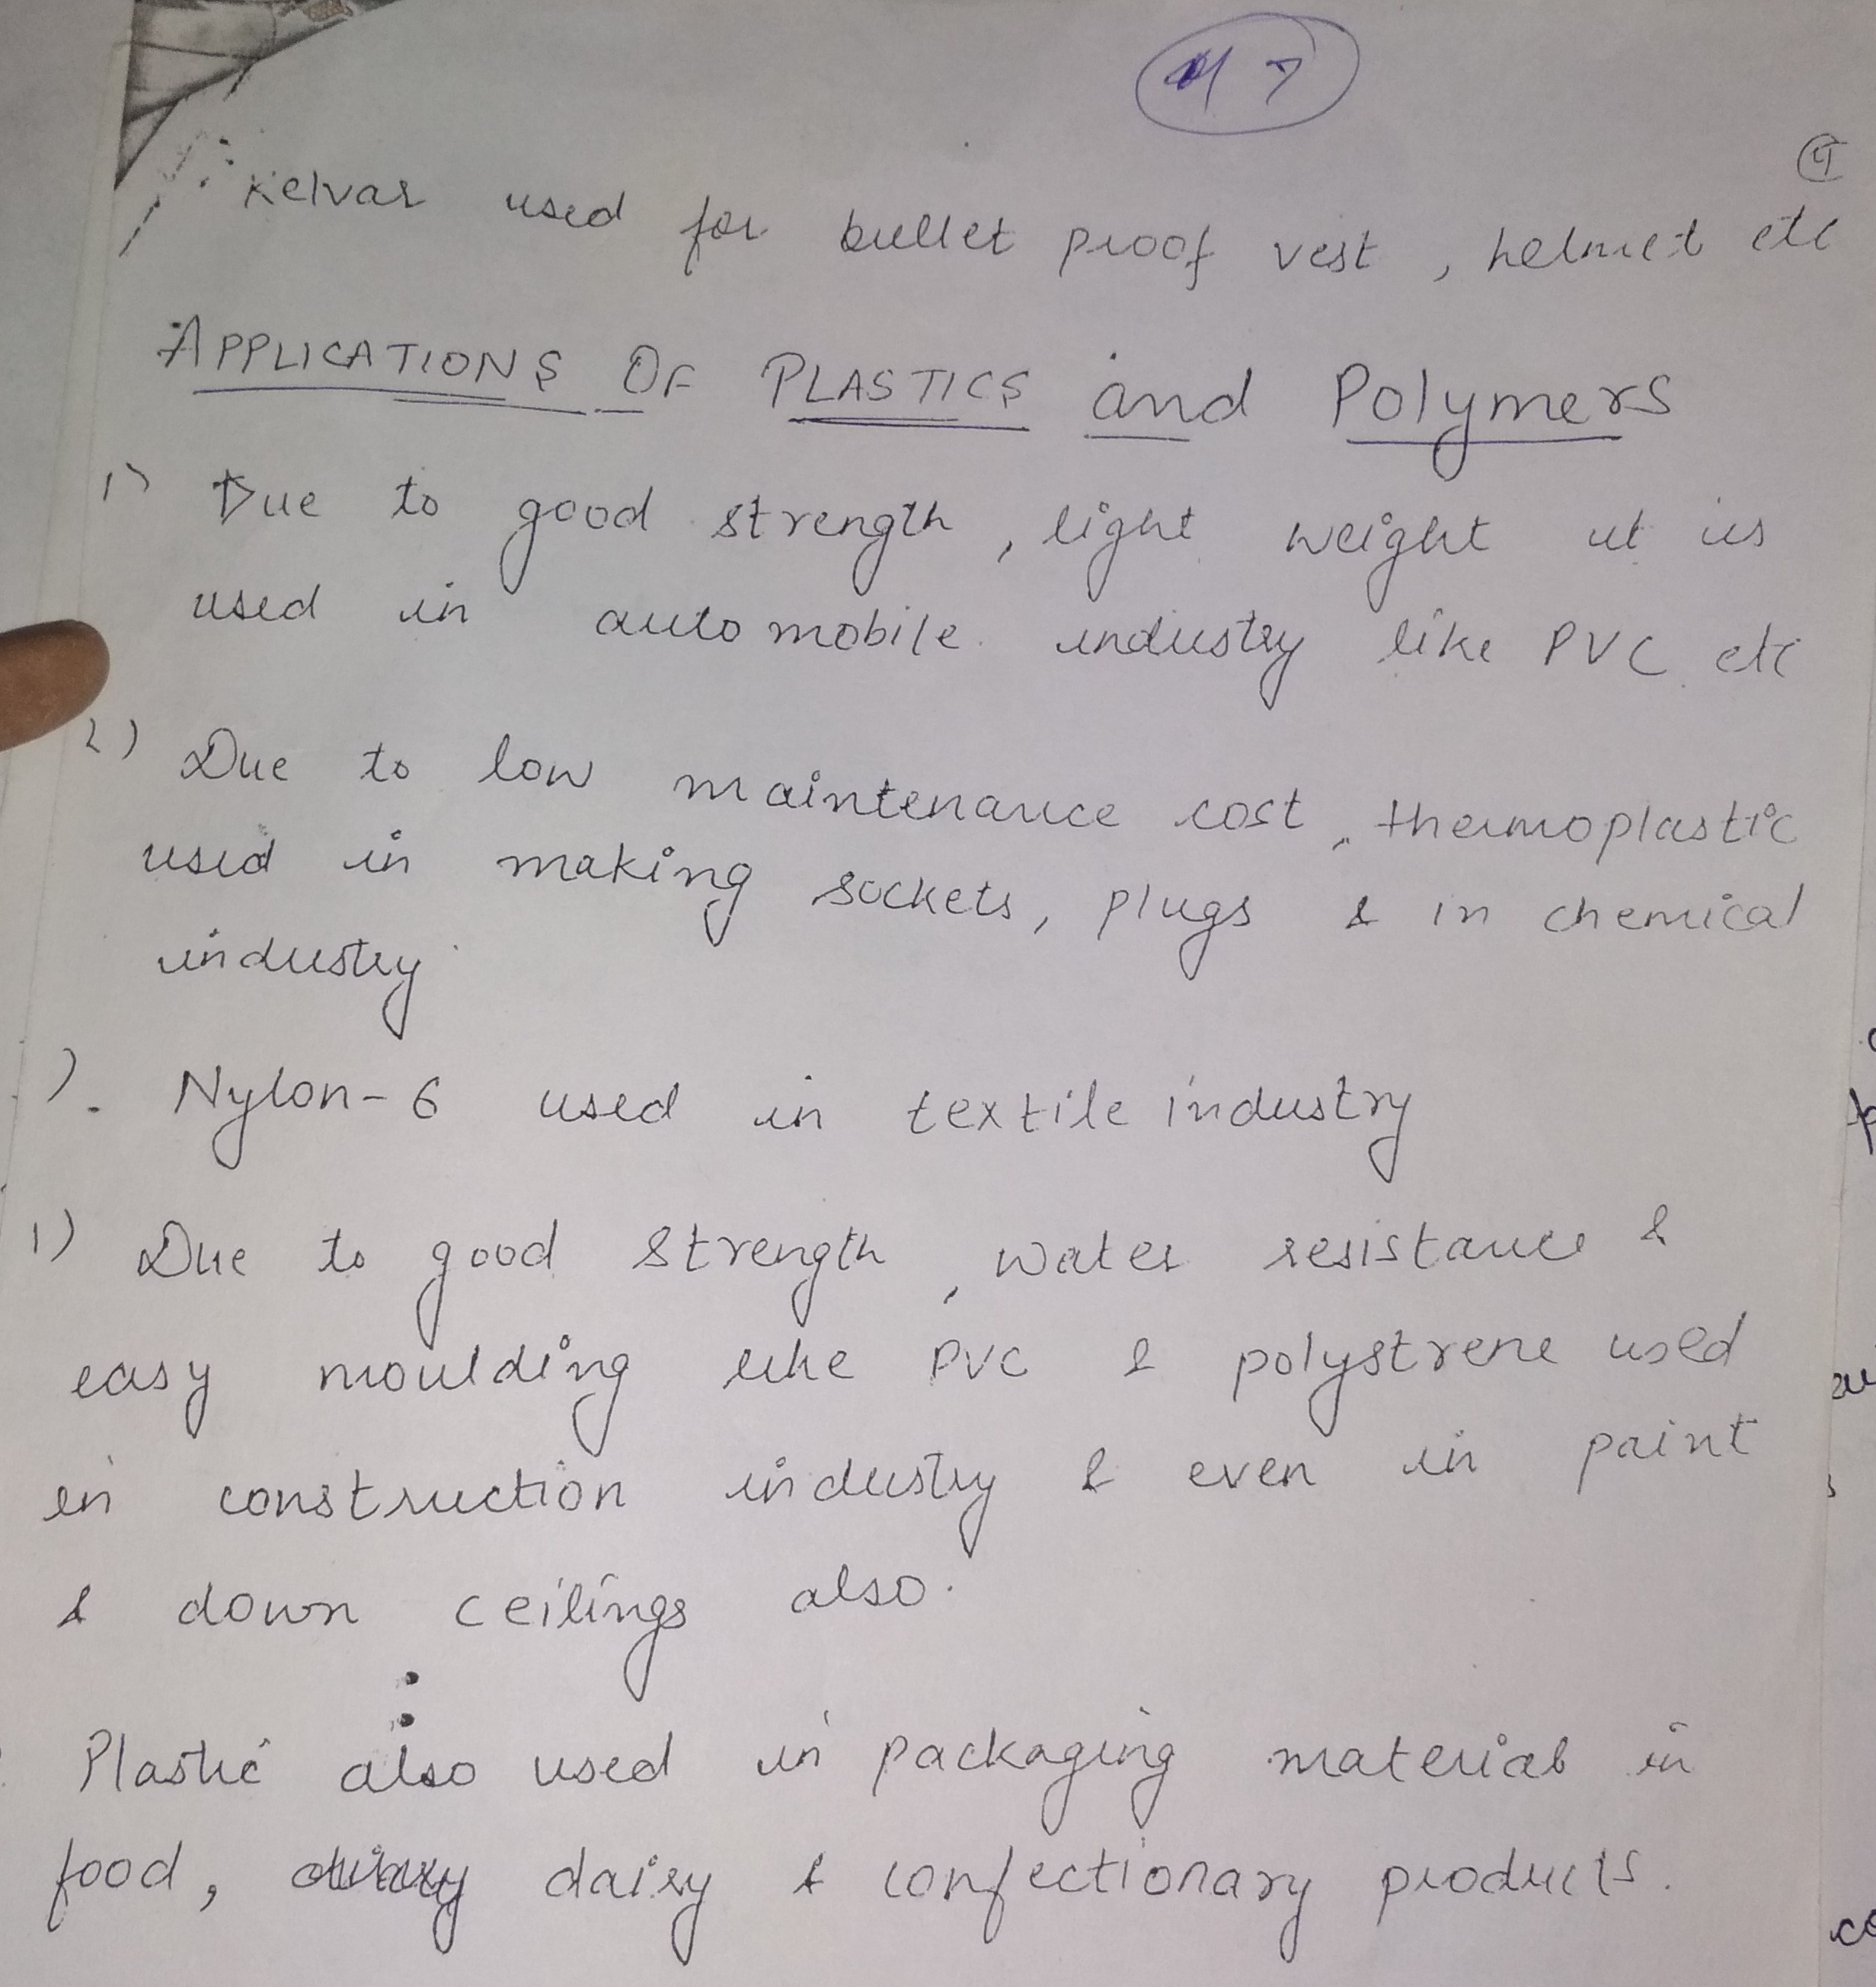 7
4
Kelvar used for bullet proof vest , helmet etc
APPLICATIONS OF PLASTICS and Polymers
1) Due to good strength , light weight it is
used in automobile industry like PVC etc
2) Due to low maintenance cost , thermoplastic
used in making sockets, plugs & in chemical
industry
). Nylon-6 used in textile industry
1) Due to good strength , water resistance &
easy moulding like PVC & polystrene used
in construction industry & even in paint
& down ceilings also.
Plastic also used in packaging material in
food, dairy & confectionary products.